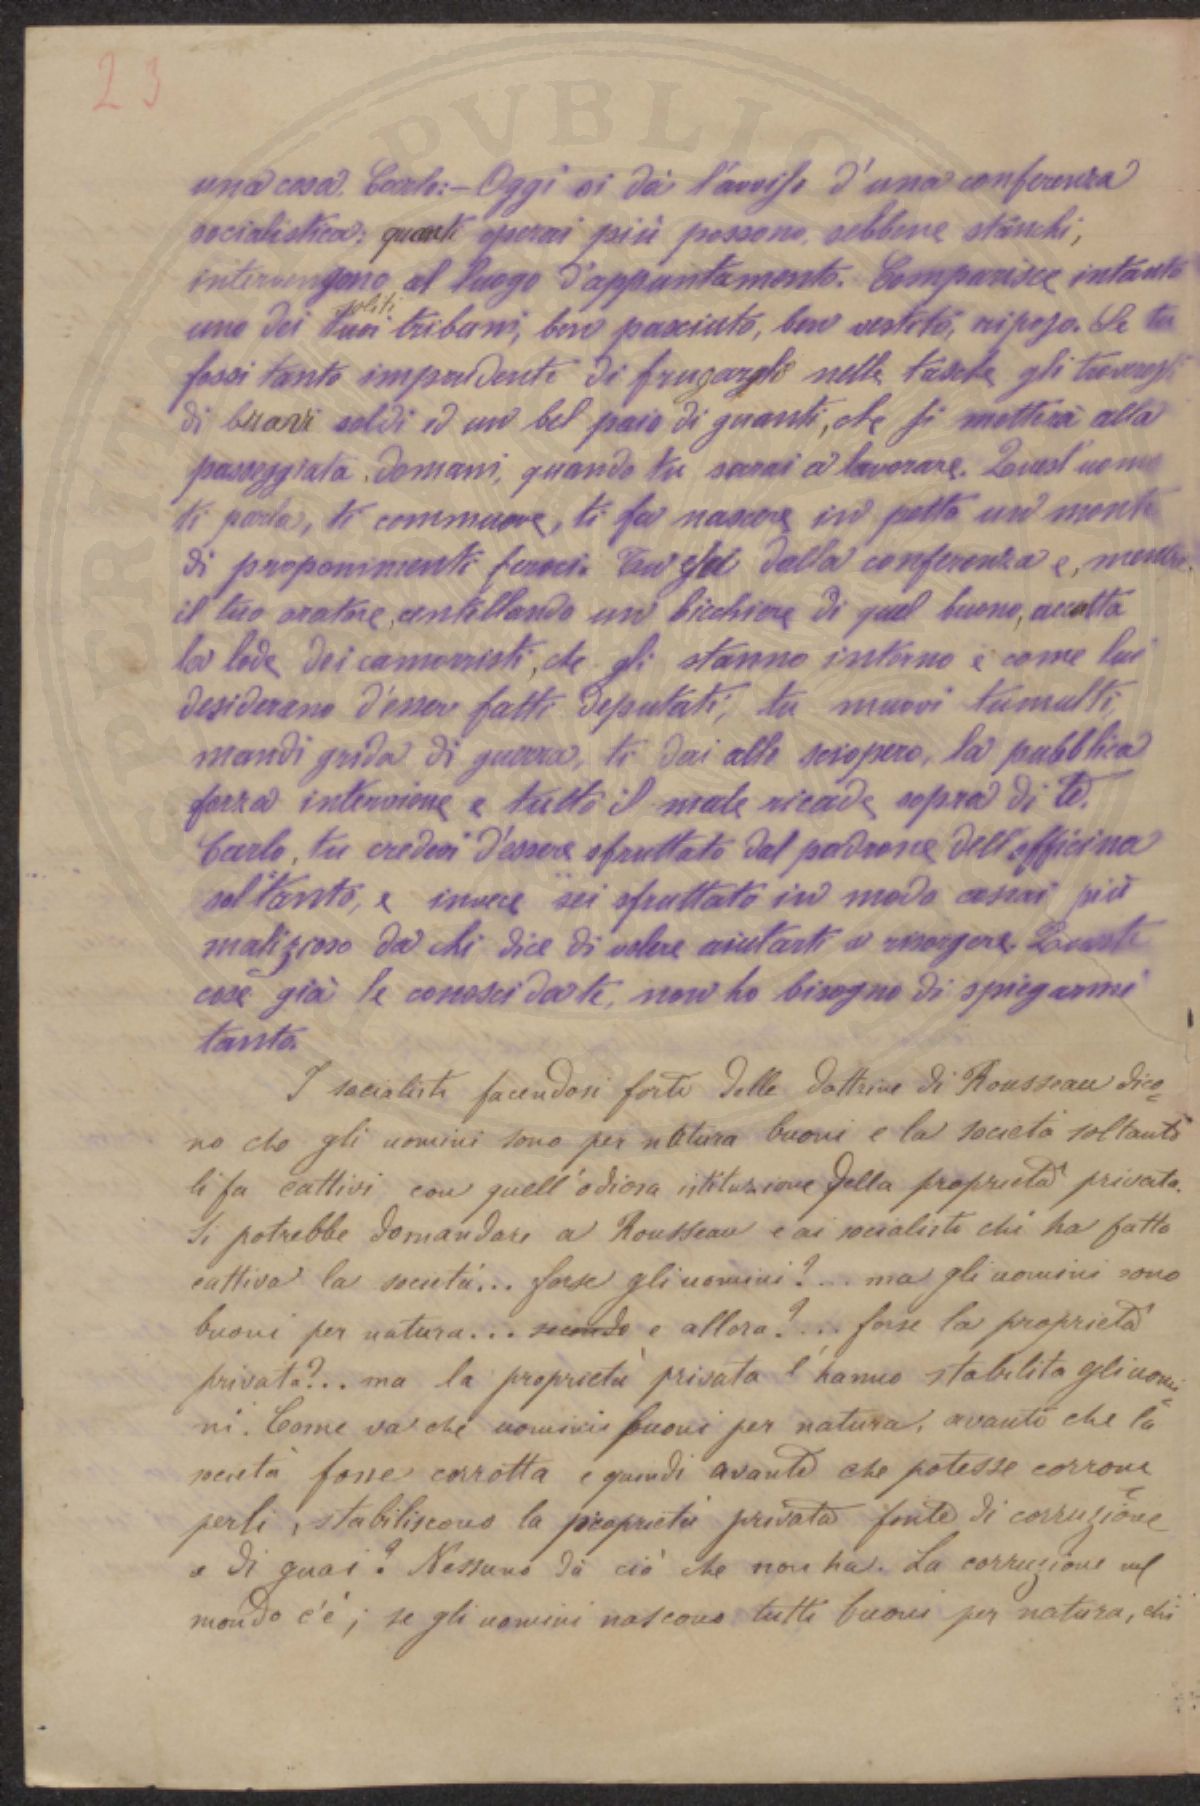 23
una cosa. Carlo: – Oggi si dà l'avviso d'una conferenza
socialistica: quanti operai più possono, sebbene stanchi,
intervengono al luogo d'appuntamento. Comparisce intanto
uno dei tuoi soliti tribuni, ben pasciuto, ben vestito, riposo. Se tu
fossi tanto imprudente di frugargli nelle tasche gli troveresti
di bravi soldi ed un bel paio di guanti, che si metterà alla
passeggiata, domani, quando tu sarai a lavorare. Quest'uomo
ti parla, ti commuove, ti fa nascere in petto un monte
di proponimenti feroci. Tu esci dalla conferenza e, mentre
il tuo oratore, centellando un bicchiere di quel buono, accatta
la lode dei camorristi, che gli stanno intorno e come lui
desiderano d'esser fatti deputati, tu muovi tumulti,
mandi grida di guerra, ti dai allo sciopero, la pubblica
forza interviene e tutto il male ricade sopra di te.
Carlo, tu credevi d'essere sfruttato dal padrone dell'officina
soltanto, e invece sei sfruttato in modo assai più
malizioso da chi dice di volere aiutarti a risorgere. Queste
cose già le conosci da te, non ho bisogno di spiegarmi
tanto.
I socialisti facendosi forti delle dottrine di Rousseau dico=
no che gli uomini sono per natura buoni e la società soltanto
li fa cattivi con quell'odiosa istituzione della proprietà privata.
Si potrebbe domandare a Rousseau e ai socialisti chi ha fatto
cattiva la società... forse gli uomini?... ma gli uomini sono
buoni per natura... secondo e allora?... forse la proprietà
privata?.. ma la proprietà privata l'hanno stabilita gli uomi=
ni. Come va che uomini buoni per natura, avanti che la
società fosse corrotta e quindi avanti che potesse corrom=
perli, stabiliscono la proprietà privata fonte di corruzione
e di guai? Nessuno dà ciò che non ha. La corruzione nel
mondo c'è; se gli uomini nascono tutti buoni per natura, chi